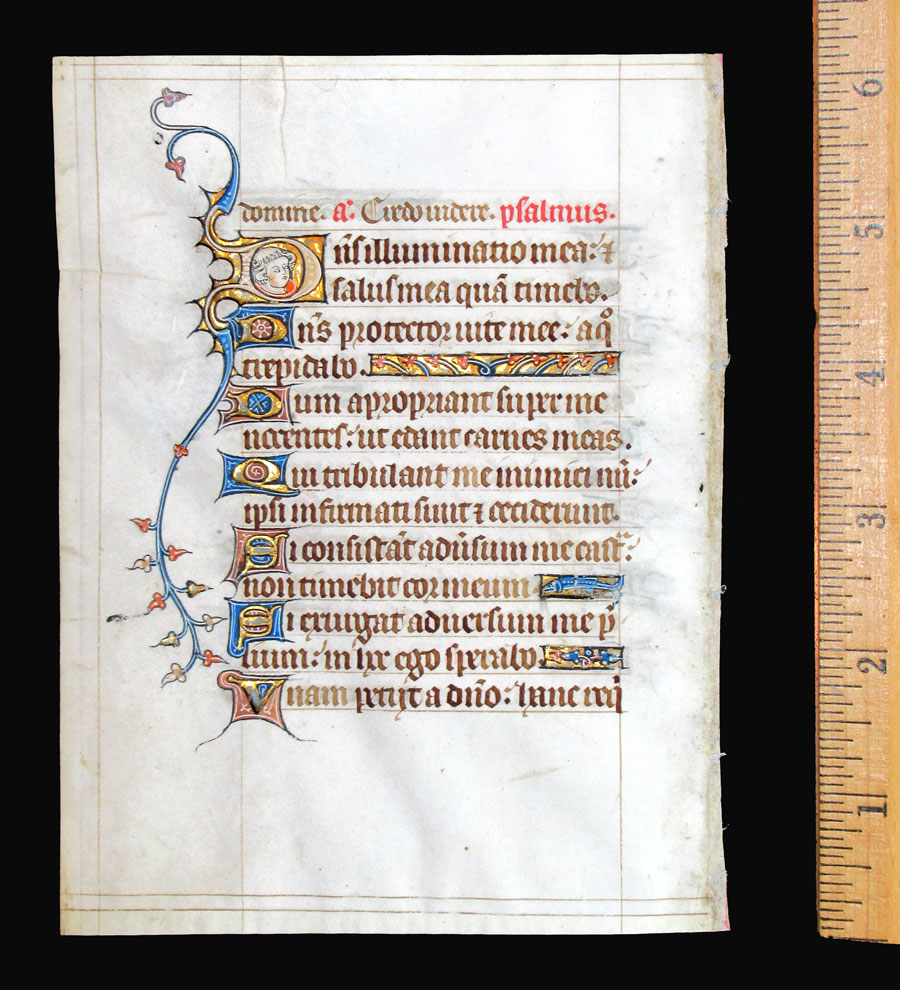 domine. a: Credo uidere. psalmus.
Dñs illuminatio mea: ⁊
salus mea quã timebo.
Dñs protector uite mee: a qͦ
trepidabo.
Dum apropriant super me
nocentes: ut edant carnes meas.
Qui tribulant me inimici mĩ:
ipsi infirmati sunt ⁊ ceciderunt.
Si consistãt adũsum me castͬ:
non timebit cor meum
Si exurgat aduersum me p̃
lium: in hoc ego sperabo
Vnam petii a dño: hanc reqͥ
6
5
4
3
2
1